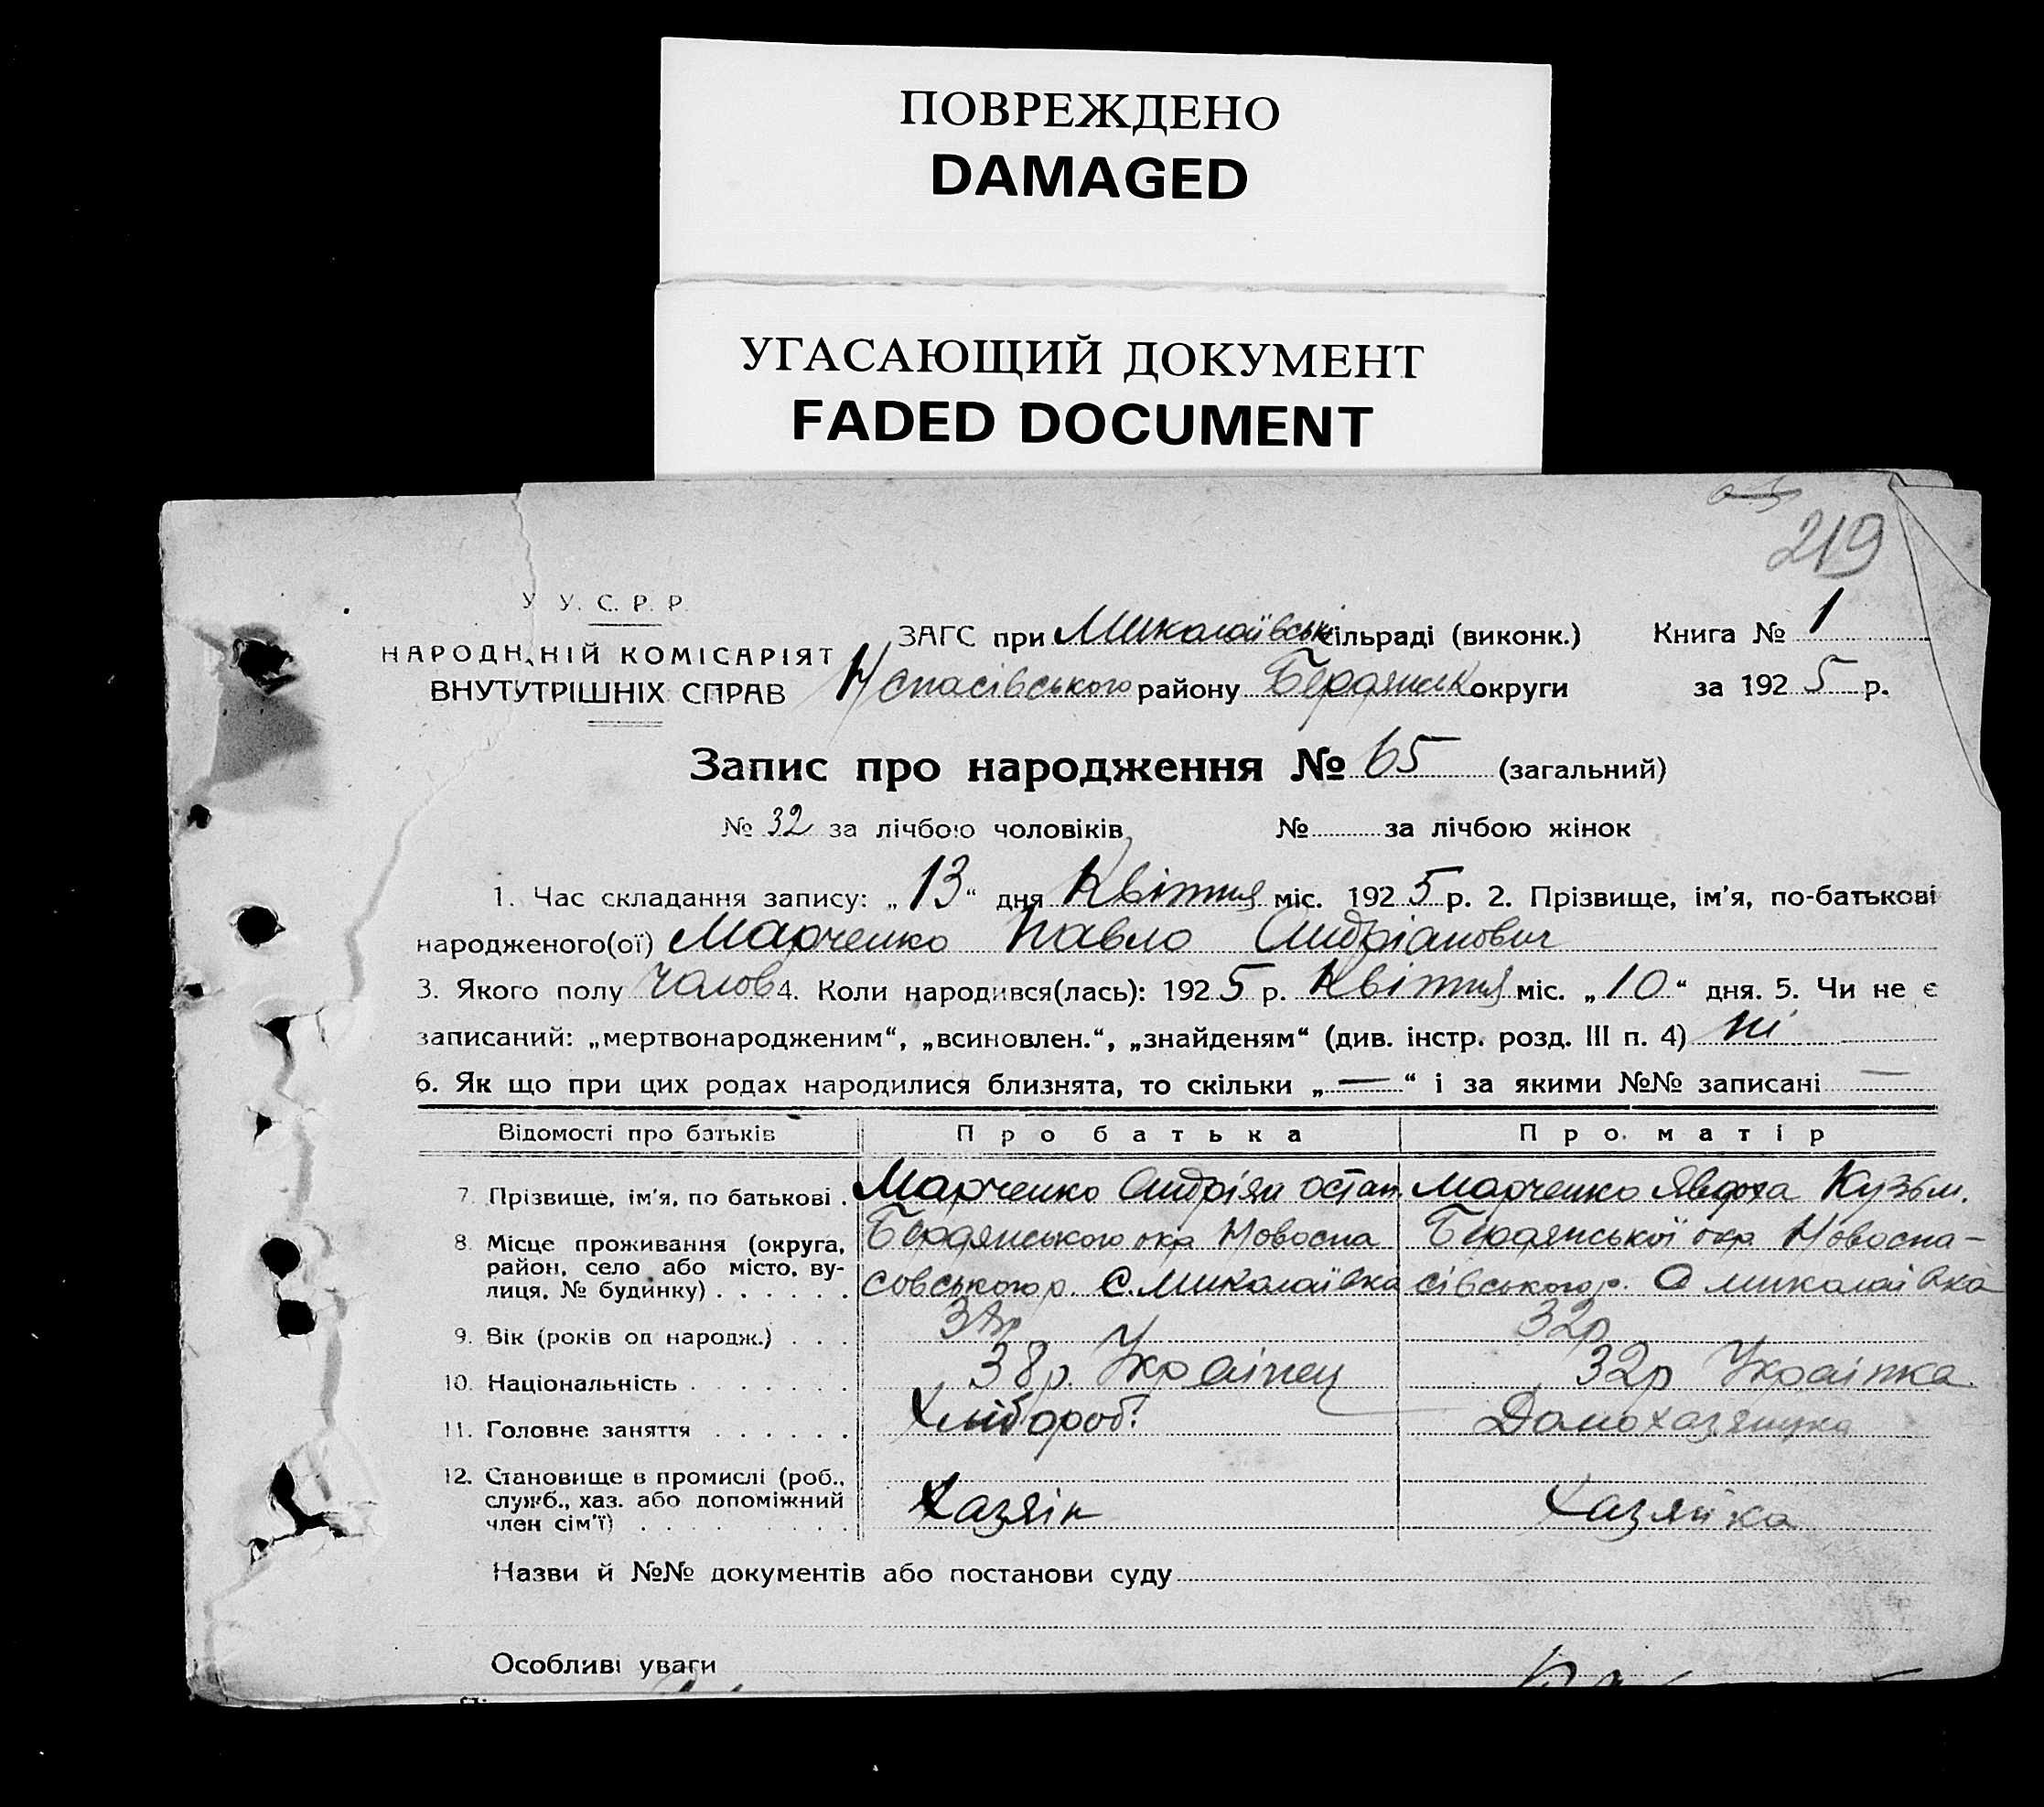 ПОВРЕЖДЕНО
DAMAGED
УГАСАЮЩИЙ ДОКУМЕНТ
FADED DOCUMENT
219
У. С. Р. Р.
НАРОДНІЙ КОМІСАРІЯТ
ВНУТУТРІШНІХ СПРАВ
ЗАГС при Миколаївськ сільраді (виконк.) Книга № 1
Н/Спасівського району Бердянськ округи за 1925 р.
Запис про народження № 65 (загальний)
№ 32 за лічбою чоловіків, № за лічбою жінок
1. Час складання запису: „13“ дня Квітня міс. 1925 р. 2. Прізвище, ім'я, по-батькові
народженого(ої) Марченко Павло Андріанович
3. Якого полу чолов 4. Коли народився(лась): 1925 р. Квітня міс. „10“ дня. 5. Чи не є
записаний: „мертвонародженим“, „всиновлен.“, „знайденям“ (див. інстр. розд. III п. 4) ні
6. Як що при цих родах народилися близнята, то скільки „—“ і за якими №№ записані —
Відомості про батьків Про батька Про матір
7. Прізвище, ім'я, по батькові . Марченко Андріян Остап. Марченко Явдоха Кузьм.
8. Місце проживання (округа, Бердянського окр Новоспа Бердянської окр Новоспа-
район, село або місто, ву-
лиця, № будинку) . . . . . . совського р. С. Миколаївка сівського р. С Миколаівка
9. Вік (років од народж.) . . . 32р
10. Національність . . . . . . . 38р. Українец 32р Українка
11. Головне заняття . . . . . . Хлібороб. Домохазяйка
12. Становище в промислі (роб.,
служб., хаз. або допоміжний
член сім'ї) . . . . . . . . . Хазяін Хазяйка
Назви й №№ документів або постанови суду
Особливі уваги